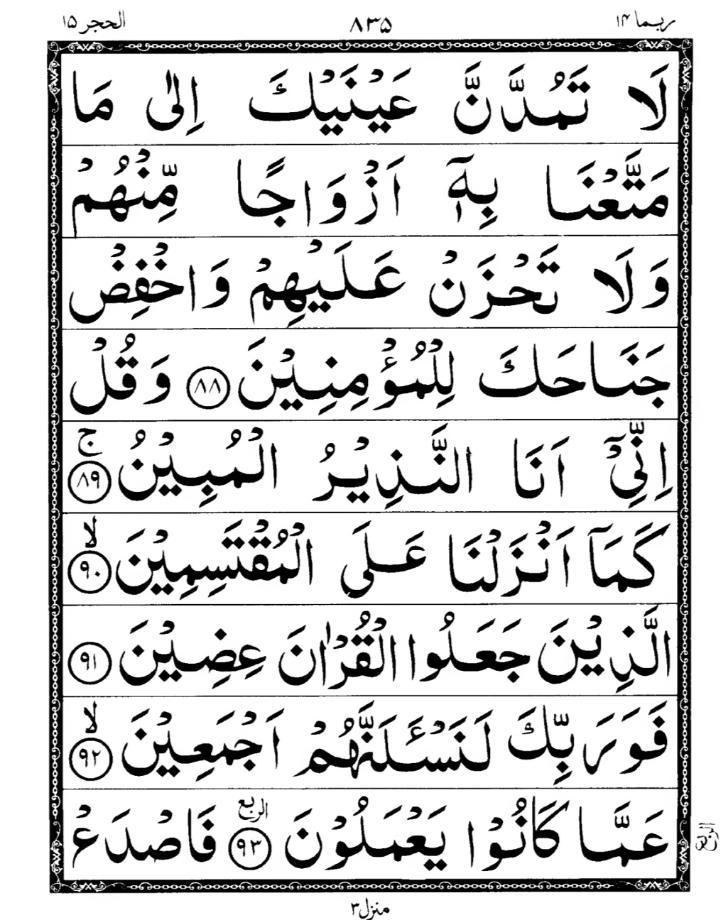 ربما ۱۴ ۸۳۵ الحجر ۱۵
لَا تَمُدَّنَّ عَيْنَيْكَ اِلٰى مَا
مَتَّعْنَا بِهٖٓ اَزْوَاجًا مِّنْهُمْ
وَلَا تَحْزَنْ عَلَيْهِمْ وَاخْفِضْ
جَنَاحَكَ لِلْمُؤْمِنِيْنَ ۸۸ وَقُلْ
اِنِّيْٓ اَنَا النَّذِيْرُ الْمُبِيْنُ ج ۸۹
كَمَآ اَنْزَلْنَا عَلَى الْمُقْتَسِمِيْنَ لا ۹۰
الَّذِيْنَ جَعَلُوا الْقُرْاٰنَ عِضِيْنَ ۹۱
فَوَرَبِّكَ لَنَسْـَٔلَنَّهُمْ اَجْمَعِيْنَ لا ۹۲
عَمَّا كَانُوْا يَعْمَلُوْنَ الربع ۹۳ فَاصْدَعْ
الربع
منزل ۳